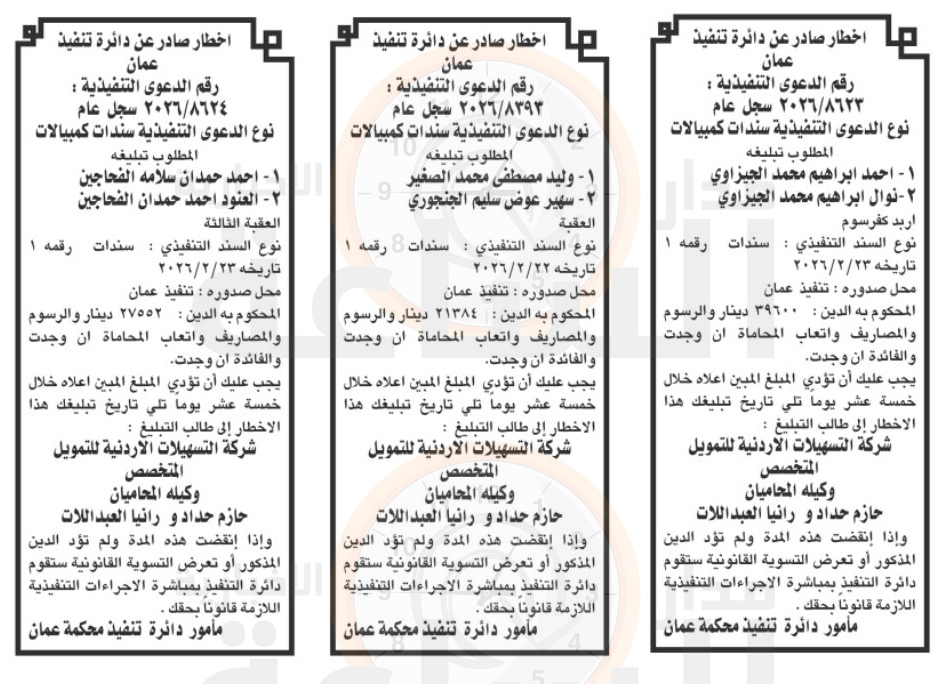 اخطار صادر عن دائرة تنفيذ
عمان
رقم الدعوى التنفيذية :
٢٠٢٦/٨٦٢٣ سجل عام
نوع الدعوى التنفيذية سندات كمبيالات
المطلوب تبليغه
١- احمد ابراهيم محمد الجيزاوي
٢-نوال ابراهيم محمد الجيزاوي
اربد كفرسوم
نوع السند التنفيذي : سندات رقمه ١
تاريخه ٢٠٢٦/٢/٢٣
محل صدوره : تنفيذ عمان
المحكوم به الدين : ٣٩٦٠٠ دينار والرسوم
والمصاريف واتعاب المحاماة ان وجدت
والفائدة ان وجدت.
يجب عليك أن تؤدي المبلغ المبين اعلاه خلال
خمسة عشر يوما تلي تاريخ تبليغك هذا
الاخطار إلى طالب التبليغ :
شركة التسهيلات الاردنية للتمويل
المتخصص
وكيله المحاميان
حازم حداد و رانيا العبداللات
وإذا إنقضت هذه المدة ولم تؤد الدين
المذكور أو تعرض التسوية القانونية ستقوم
دائرة التنفيذ بمباشرة الاجراءات التنفيذية
اللازمة قانوناً بحقك .
مأمور دائرة تنفيذ محكمة عمان
اخطار صادر عن دائرة تنفيذ
عمان
رقم الدعوى التنفيذية :
٢٠٢٦/٨٣٩٣ سجل عام
نوع الدعوى التنفيذية سندات كمبيالات
المطلوب تبليغه
١- وليد مصطفى محمد الصغير
٢- سهير عوض سليم الجنجوري
العقبة
نوع السند التنفيذي : سندات رقمه ١
تاريخه ٢٠٢٦/٢/٢٢
محل صدوره : تنفيذ عمان
المحكوم به الدين : ٢١٣٨٤ دينار والرسوم
والمصاريف واتعاب المحاماة ان وجدت
والفائدة ان وجدت.
يجب عليك أن تؤدي المبلغ المبين اعلاه خلال
خمسة عشر يوماً تلي تاريخ تبليغك هذا
الاخطار إلى طالب التبليغ :
شركة التسهيلات الاردنية للتمويل
المتخصص
وكيله المحاميان
حازم حداد و رانيا العبداللات
وإذا إنقضت هذه المدة ولم تؤد الدين
المذكور أو تعرض التسوية القانونية ستقوم
دائرة التنفيذ بمباشرة الاجراءات التنفيذية
اللازمة قانوناً بحقك .
مأمور دائرة تنفيذ محكمة عمان
اخطار صادر عن دائرة تنفيذ
عمان
رقم الدعوى التنفيذية :
٢٠٢٦/٨٦٢٤ سجل عام
نوع الدعوى التنفيذية سندات كمبيالات
المطلوب تبليغه
١- احمد حمدان سلامه الفحاجين
٢- العنود احمد حمدان الفحاجين
العقبة الثالثة
نوع السند التنفيذي : سندات رقمه ١
تاريخه ٢٠٢٦/٢/٢٣
محل صدوره : تنفيذ عمان
المحكوم به الدين : ٢٧٥٥٢ دينار والرسوم
والمصاريف واتعاب المحاماة ان وجدت
والفائدة ان وجدت.
يجب عليك أن تؤدي المبلغ المبين اعلاه خلال
خمسة عشر يوماً تلي تاريخ تبليغك هذا
الاخطار إلى طالب التبليغ :
شركة التسهيلات الاردنية للتمويل
المتخصص
وكيله المحاميان
حازم حداد و رانيا العبداللات
وإذا إنقضت هذه المدة ولم تؤد الدين
المذكور أو تعرض التسوية القانونية ستقوم
دائرة التنفيذ بمباشرة الاجراءات التنفيذية
اللازمة قانوناً بحقك .
مأمور دائرة تنفيذ محكمة عمان